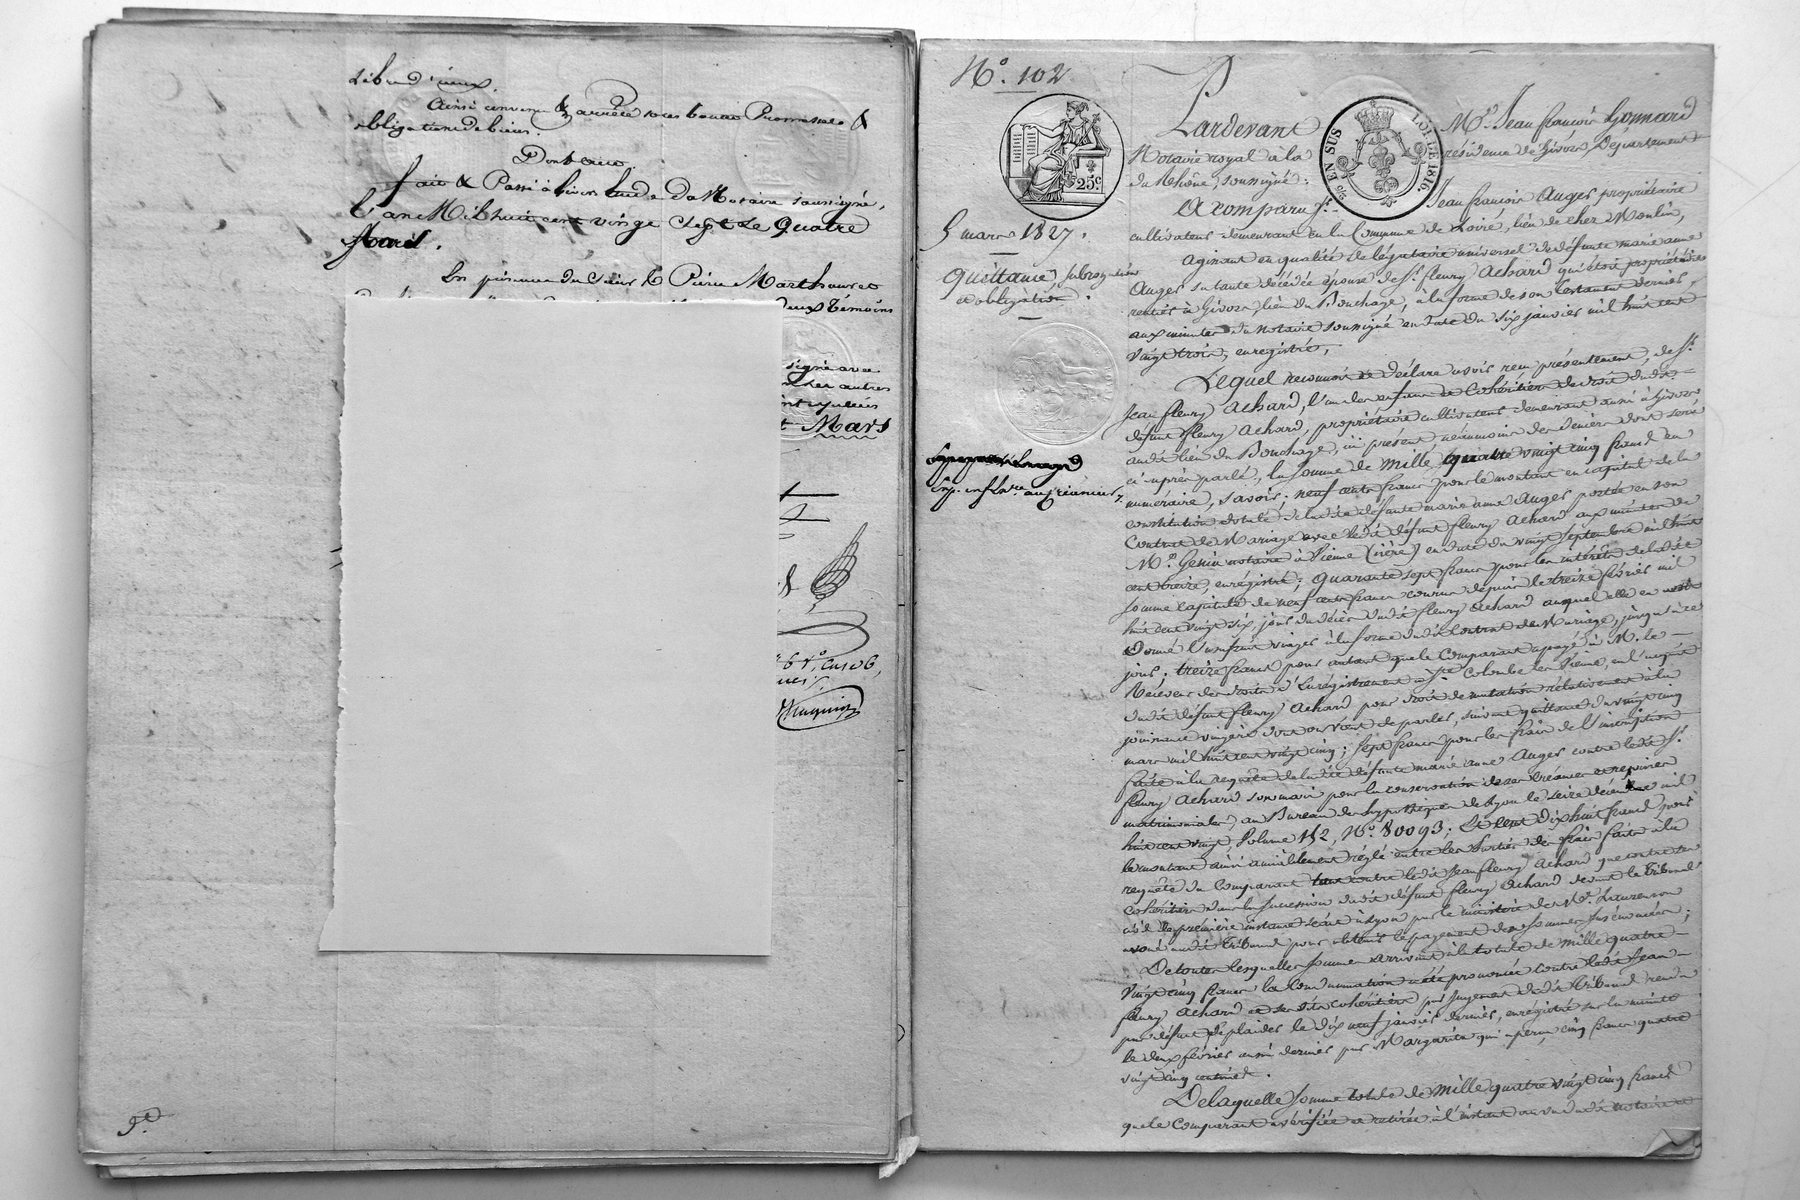 Ainsi convenu & arrêté sous bonnes Promesses &
obligations de biens.
Dont acte.
fait & Passé à Givors Etude du Notaire soussigné,
l'an Mil huit cent vingt Sept Le Quatre
Mars.
En présence du Sieur Pierre
deux témoins
signé avec
les autres
t Mars
9.e
N.o 102
25c
EN SUS
LOI DE 1816
5 mars 1827.
Quittance, subrogation
et obligation.
Pardevant M.e Jean françois Gonnard
Notaire royal à la résidence de Givors, Département
du Rhône, soussigné:
A comparu S.r Jean françois Auger propriétaire
cultivateur demeurant en la Commune de Loire, lieu de chez Moulin,
agissant en qualité de légataire universel de défunte marie anne
Auger sa tante décédée épouse de S.r fleury Achard qui étoit propriétaire
rentier à Givors, lieu du Bouchage, à la forme de son testament dernier,
aux minutes du notaire soussigné en date du six janvier mil huit cent
vingt trois, enregistré;
Lequel reconnoit et déclare avoir reçu présentement, de S.r
Jean fleury Achard, l'un des enfans et Cohéritiers de droit dudit
défunt fleury Achard, propriétaire cultivateur demeurant aussi à Givors
audit lieu du Bouchage, ici présent néanmoins des deniers dont sera
ci-après parlé, la somme de mille quatre vingt cinq francs en
numéraire, savoir: neuf cents francs pour le montant en capital de la
constitution dotale de ladite défunte marie anne Auger portée en son
Contrat de Mariage avec ledit défunt fleury Achard aux minutes de
M.e Genin notaire à Vienne (isère) en date du vingt septembre mil huit
cent treize, enregistré; quarante sept francs pour les intérêts de ladite
somme capitale de neuf cents francs courus depuis le treize février mil
huit cent vingt six, jour du décès dudit fleury Achard auquel elle en avoit
donné l'usufruit viager à la forme dudit Contrat de Mariage, jusqu'à ce
jour; treize francs pour autant que le Comparant a payé à M. le
Receveur des droits d'Enregistrement à S.te Colombe les Vienne, en l'acquit
dudit défunt fleury Achard pour droit de mutation relativement à la
jouissance viagère dont on vient de parler, suivant quittance du vingt cinq
mars mil huit cent vingt cinq; Sept francs pour les frais de l'inscription
faite à la requête de ladite défunte marie anne Auger contre ledit S.r
fleury Achard son mari pour la conservation de ses créances et reprises
matrimoniales, au Bureau des hypothèques de Lyon le seize décembre mil
huit cent vingt, Volume 152, N.o 80093; Et cent dix huit francs, pour
le montant ainsi amiablement réglé entre les Parties des frais faits à la
requête du Comparant tant contre ledit Jean fleury Achard que contre ses
cohéritiers dans la succession dudit défunt fleury Achard devant le Tribunal
civil de première instance séant à Lyon par le ministère de M.e Laurenson
avoué audit Tribunal pour obtenir le payement des sommes sus énoncées;
De toutes lesquelles sommes arrivant à la totale de mille quatre
vingt cinq francs la Condamnation a été prononcée contre ledit Jean
fleury Achard et ses dits cohéritiers par Jugement dudit Tribunal rendu
par défaut de plaider le dix neuf janvier dernier, enregistré sur la minute
le deux février aussi dernier par Margarita qui a perçu cinq francs quatre
vingt cinq centimes.
De laquelle somme totale de mille quatre vingt cinq francs
que le Comparant a vérifiée et retirée à l'instant au vu dudit notaire et